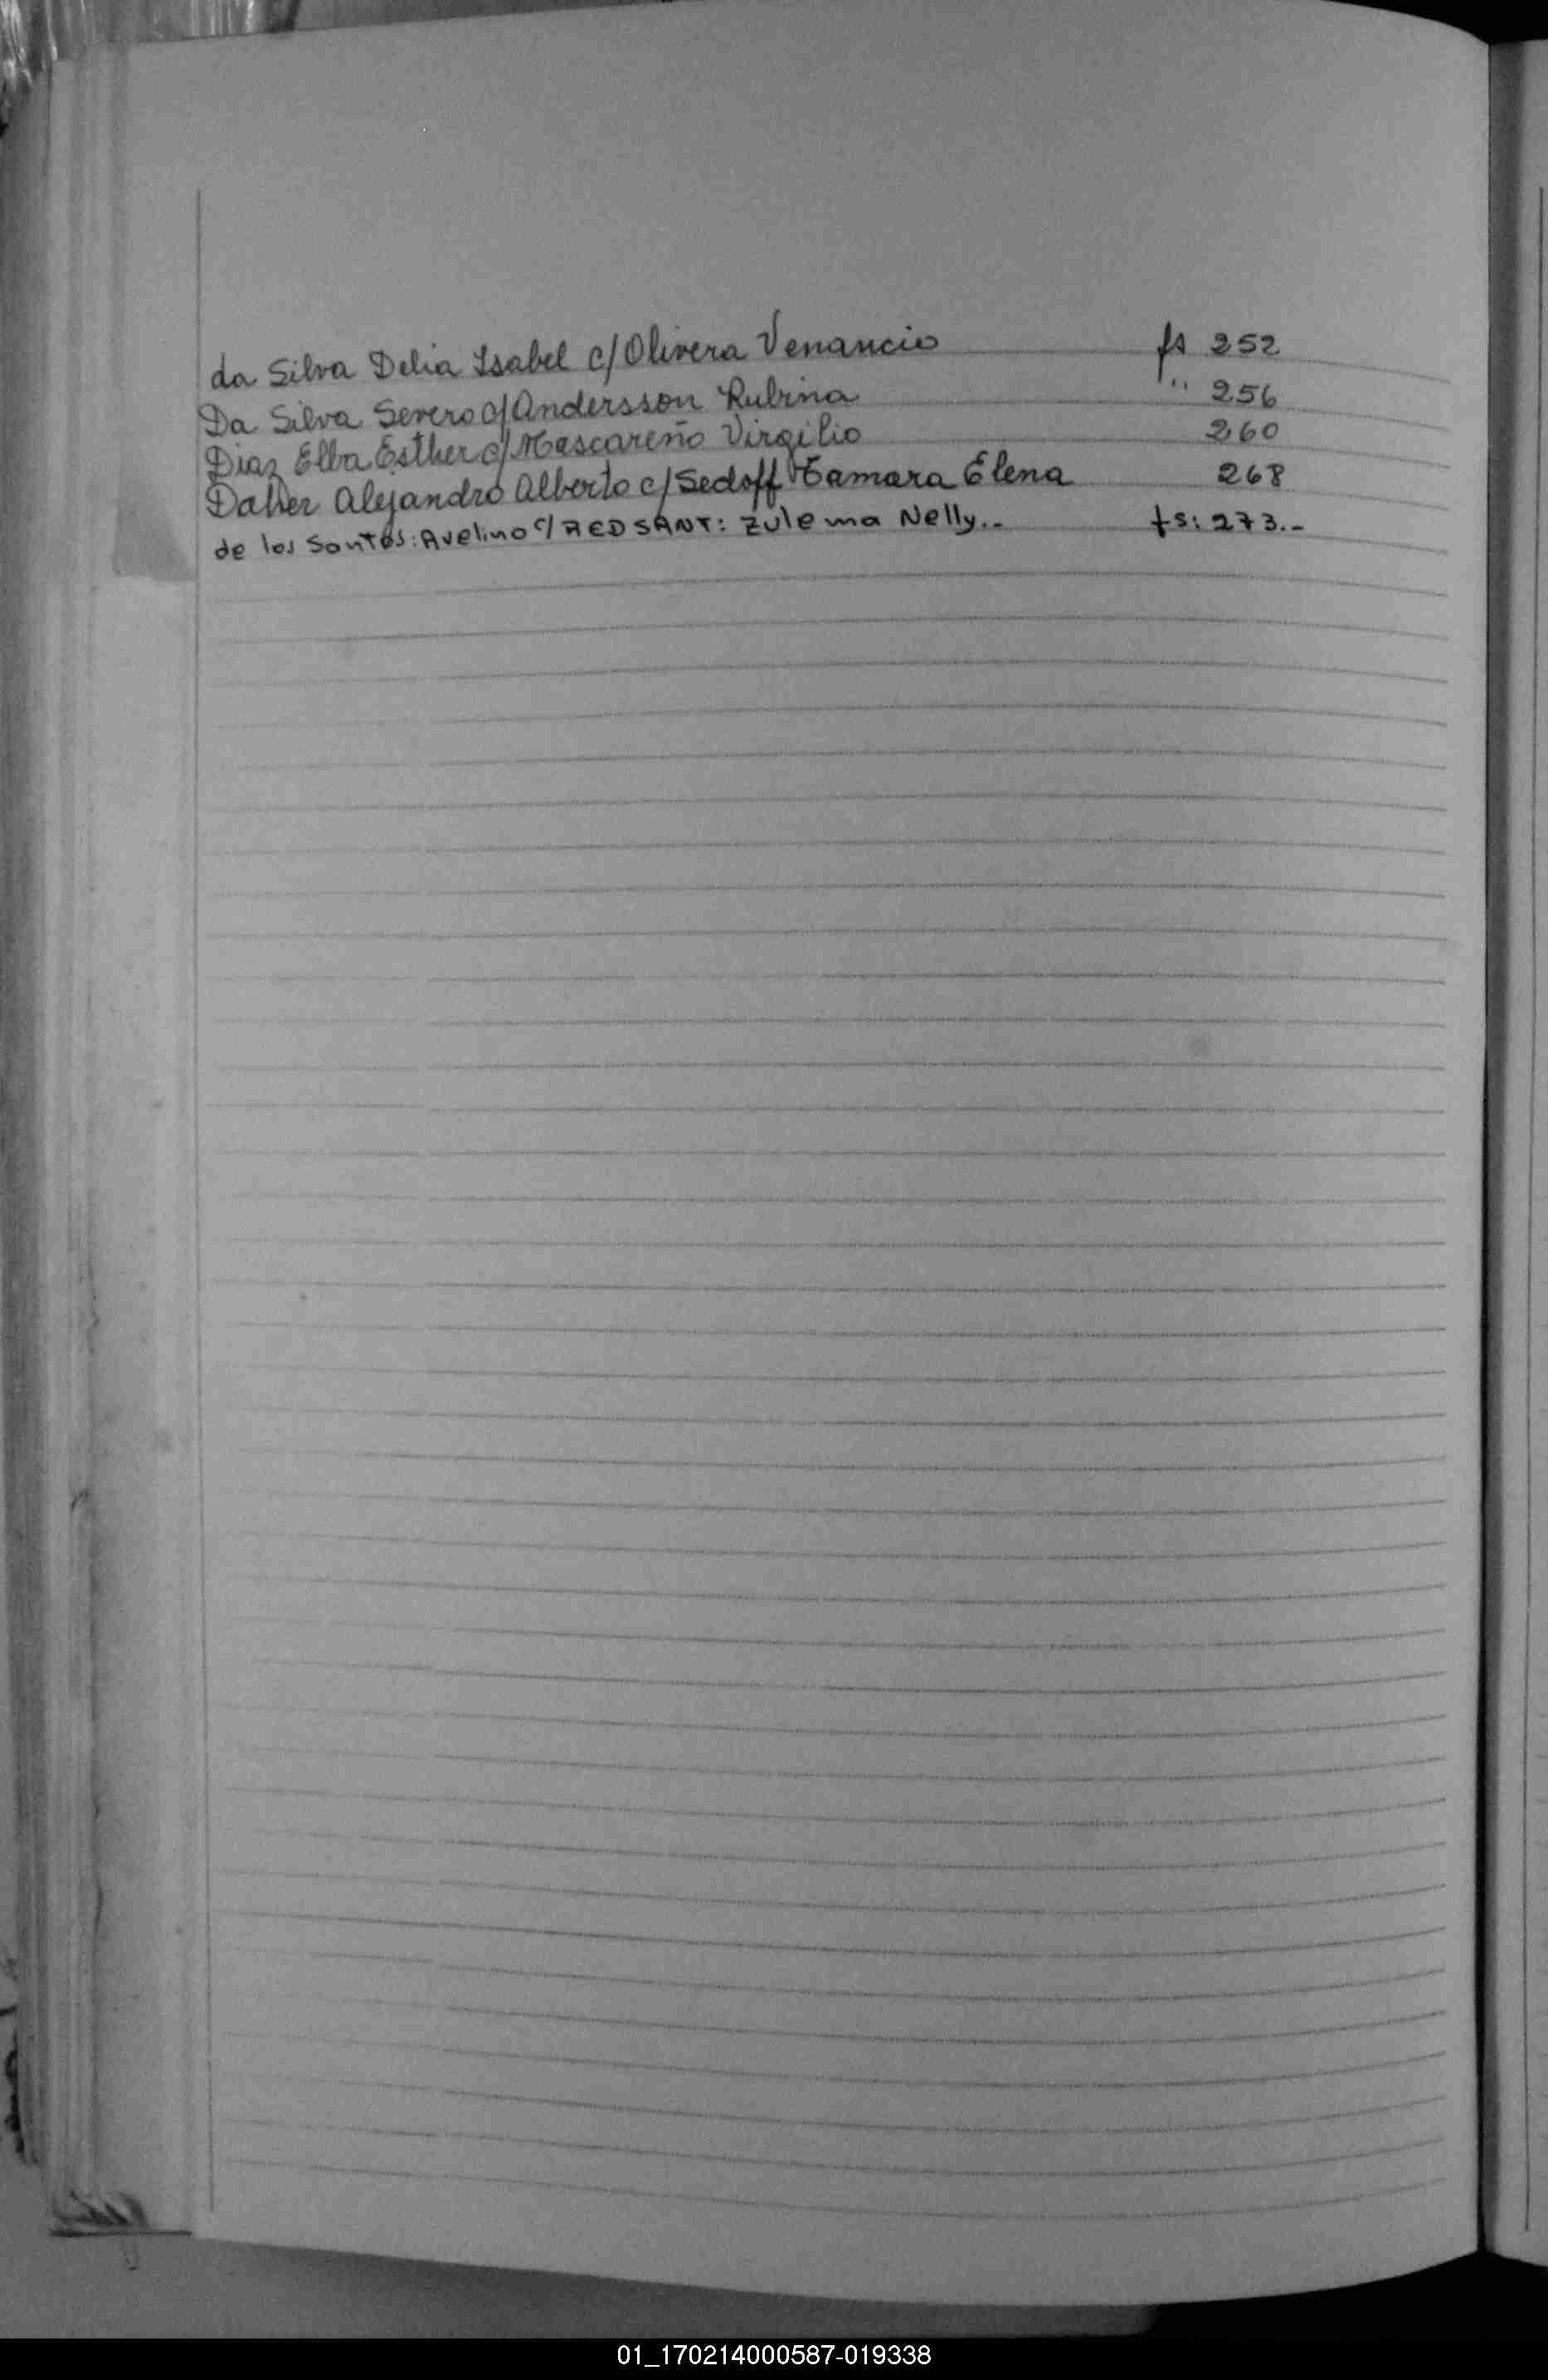 da Silva Delia Isabel c/ Olivera Venancio fs 252
Da Silva Severo c/ Andersson Rubina " 256
Diaz Elba Esther c/ Mascareño Virgilio 260
Daher Alejandro Alberto c/ Sedoff Tamara Elena 268
de los Santos: Avelino c/ AEDSANT: Zulema Nelly.- fs: 273.-
01_170214000587-019338